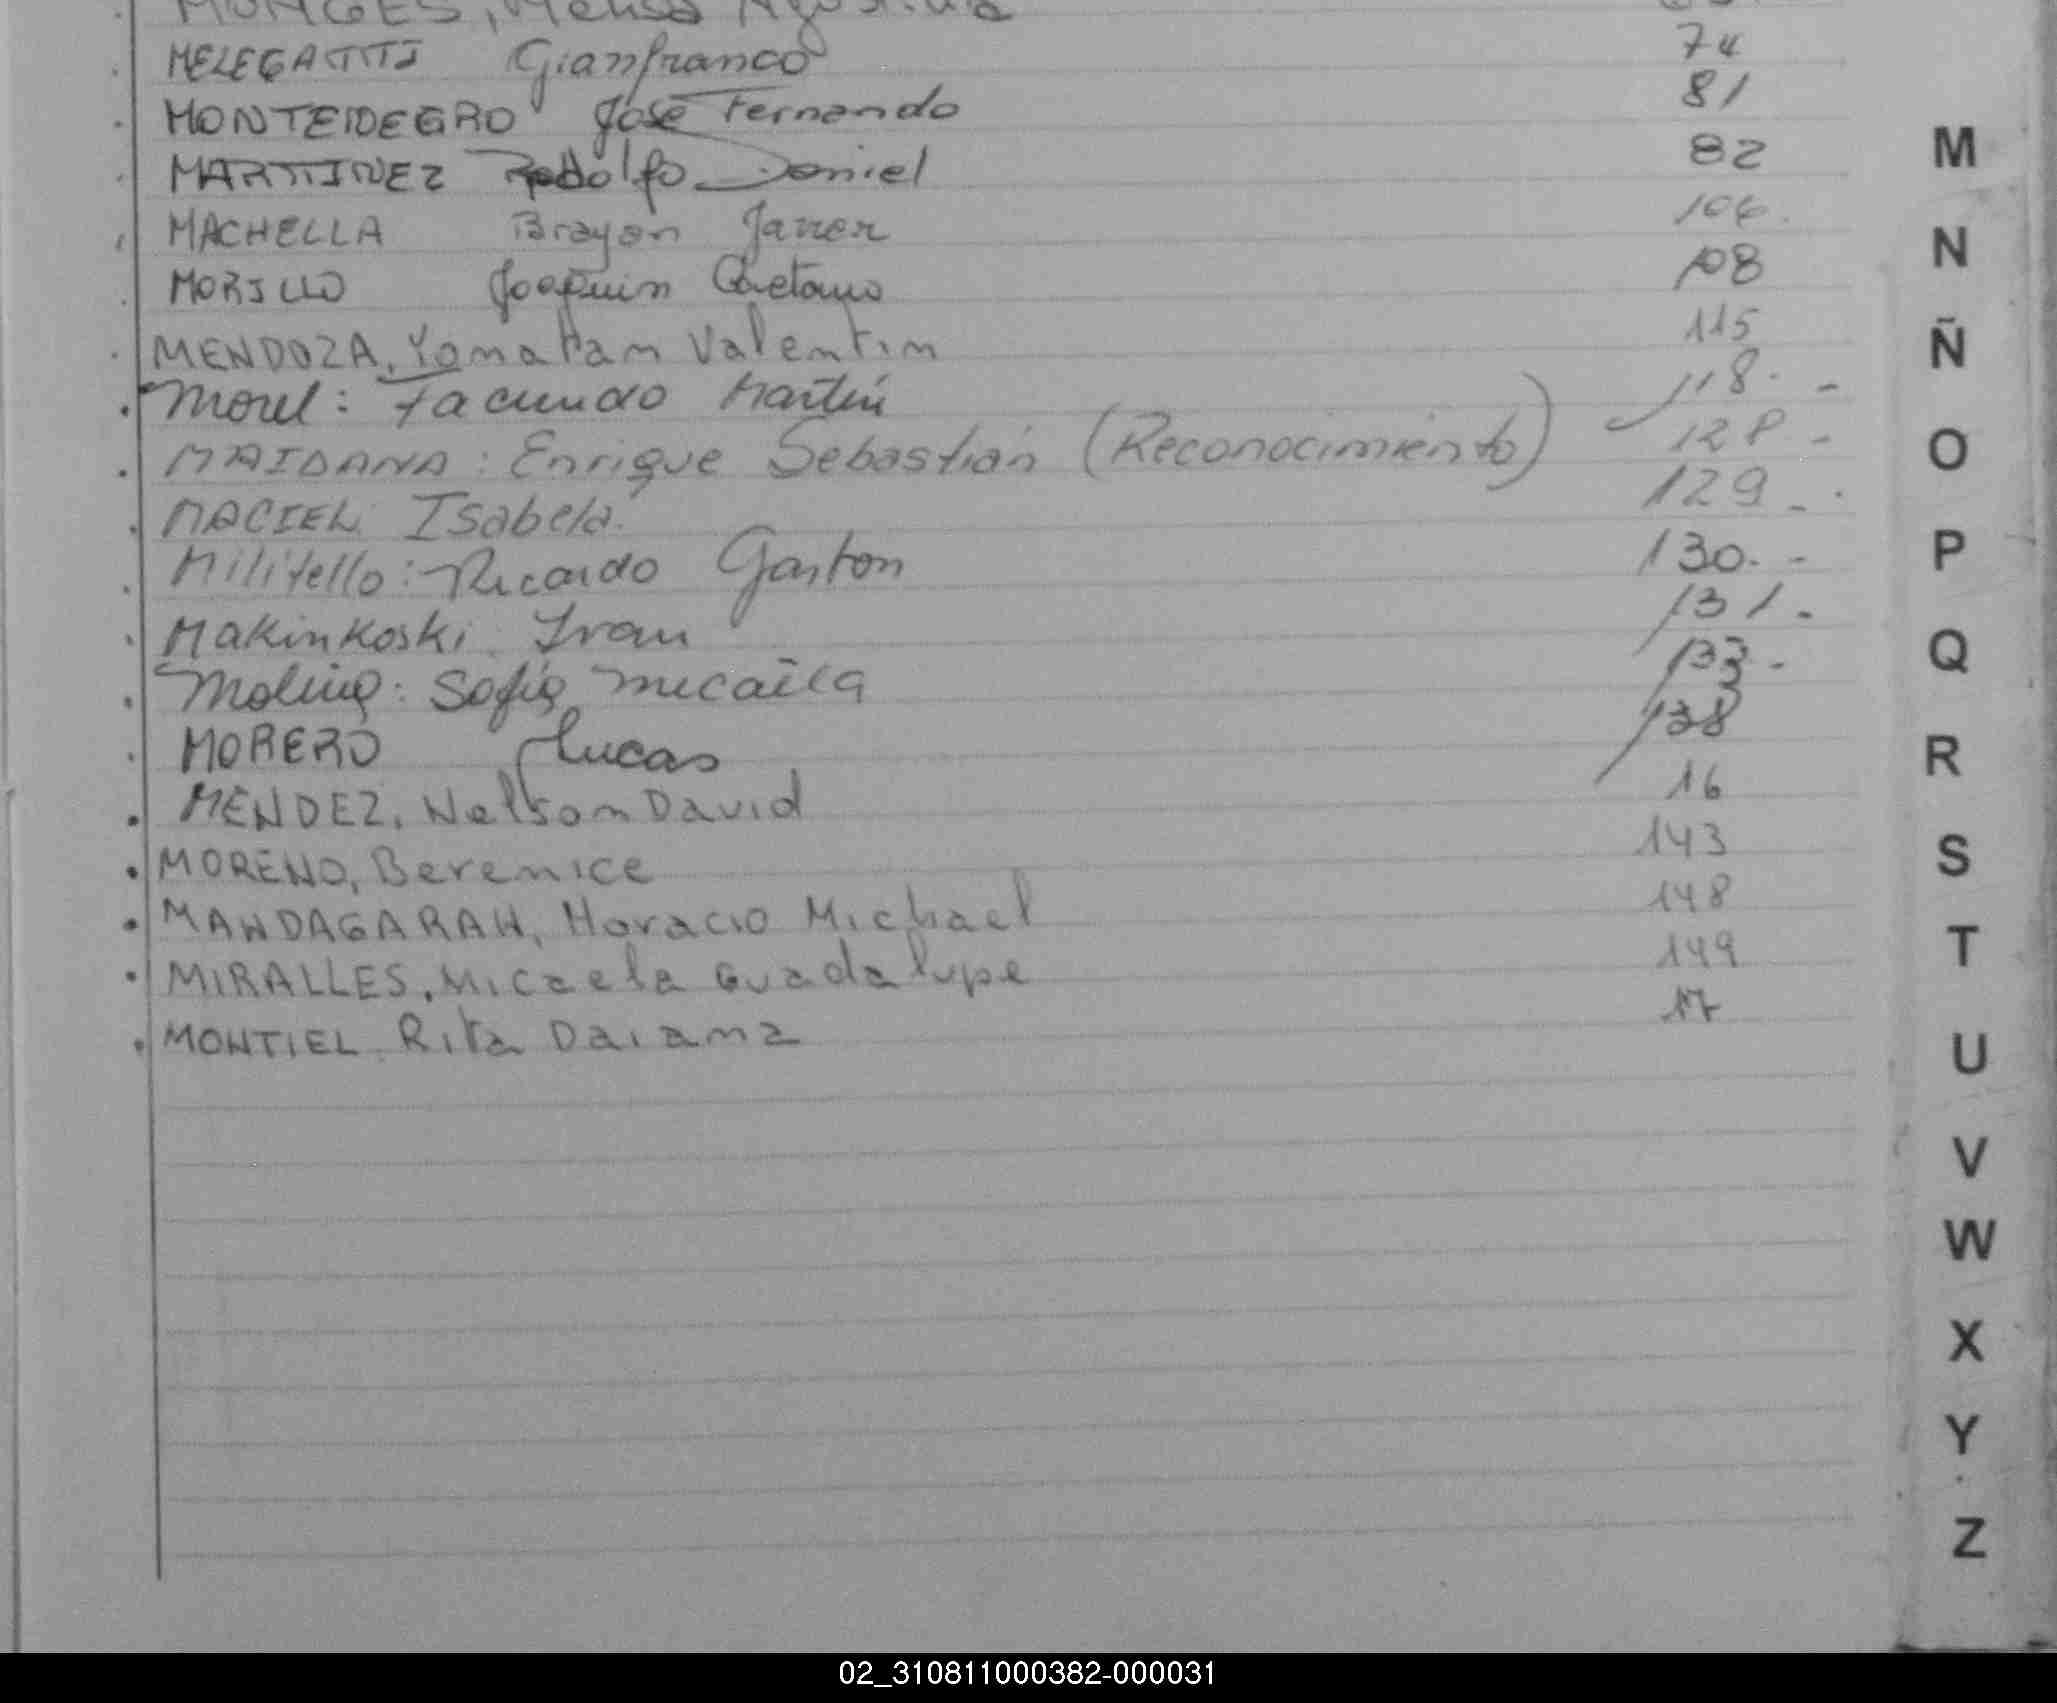 MONGES, Melisa Agostina
MELEGATTI Gianfranco 74
MONTENEGRO José Fernando 81
MARTINEZ Rodolfo Daniel 82
MACHELLA Brayan Javier 106.
MORILLO Joaquin Caetano 108
MENDOZA, Yonatan Valentin 115
Morel: Facundo Martín 118. -
MAIDANA: Enrique Sebastián (Reconocimiento) 128 -
MACIEL Isabela. 129 - .
Militello: Ricardo Gaston 130. -
Makinkoski Ivan 131.
Molina: Sofia Micaela 133 -
MORERO Lucas 138
MENDEZ, Nelson David 16
MORENO, Berenice 143
MANDAGARAN, Horacio Michael 148
MIRALLES, Micaela Guadalupe 149
MONTIEL Rita Daiana 17
M
N
Ñ
O
P
Q
R
S
T
U
V
W
X
Y
Z
02_310811000382-000031